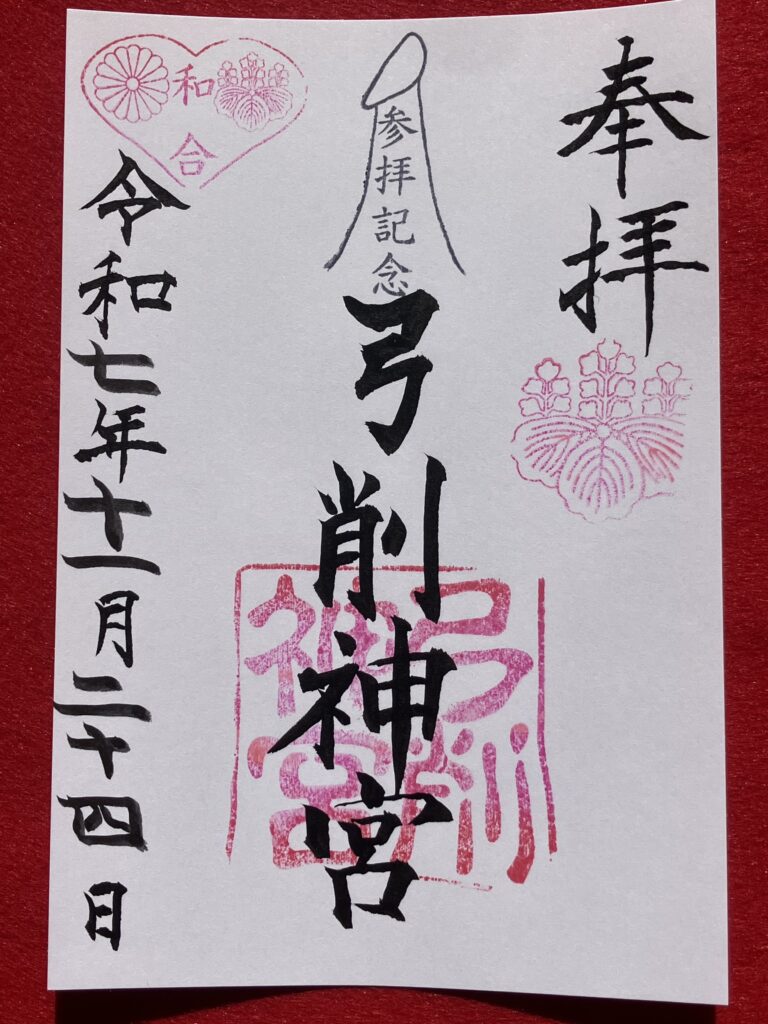 奉拝
参拝記念
弓削神宮
弓削
神宮
和合
令和七年十一月二十四日